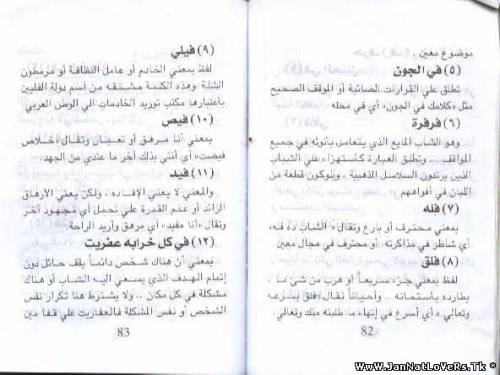 موضوع معين .
(٥) في الجون
تطلق علي القرارات الصائبة أو الموقف الصحيح
مثل «كلامك في الجون» أي في محله
(٦) فرفرة
وهو الشباب المايع الذي يتعامل بأنوثه في جميع
المواقف... وتطلق العبارة كأستهزاء علي الشباب
الذين يرتدون السلاسل الذهبية ، ويلوكون قطعة من
اللبان في أفواههم
(٧) فله
بمعني محترف أو بارع وتقال «الشباب ده فله»
أي شاطر في مذاكرته أو محترف في مجال معين
(٨) فلق
لفظ بمعني جرء سريعاً أو هرب من شئ ما ،
يطارده بأستماته .. وأحياناً تقال «فلق بسرعه
وتعالي» أي أسرع في إنهاء ما طلبته منك وتعالي
82
(٩) فيلي
لفظ بمعني الخادم أو عامل النظافة أو مرمطون
الشلة «وهذه الكلمة مشتقه من أسم دولة الفلبين
بأعتبارها مكتب توريد الخادمات الي الوطن العربي
(١٠) فيص
بمعني أنا مرهق أو تعبان وتقال «خلاص
فيصت» أي أنني بذلك آخر ما عندي من الجهد.
(١١) فيد
والمعني لا يعني الإفاده ، ولكن يعني الأرهاق
الزائد أو عدم القدرة علي تحمل أي مجهود آخر
وتقال «أنا مفيد» أي مرهق وأريد الراحة.
(١٢) في كل خرابه عفريت
بمعني أن هناك شخص دائماً يقف حائل دون
إتمام الهدف الذي يسعي اليه الشباب أو هناك
مشكلة في كل مكان .. ولا يشترط هنا تكرار نفس
الشخص أو نفس المشكلة فالعفاريت علي قفا مين
83
Www.JanNatLoveRs.Tk *